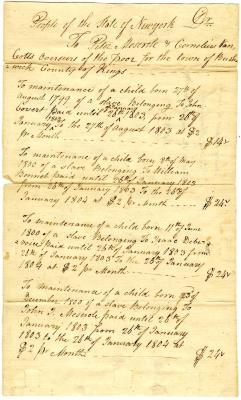 People of the State of Newyork Dr
To Peter Meserole & Cornelius Van
Cotts overseers of the Poor for the town of Bush
wick County of Kings
To maintenance of a child born 27th of
August 1799 of a slave Belonging To John
Covert Paid untill 26th 1803, from 26th of
the 27th of August 1803 at $2
Pr Month $14"
To maintenance of a child born 8th of May
1800 of a slave Belonging To William
Bennet paid untill 26th of January 1803
from 26th of January 1803 To the 26th of
January 1804 at $2 Pr Month $24"
To maintenance of a child born 11th of June
1800 of a slave Belonging To Isaac Debe
voice paid untill 26th of January 1803 from
26th of January 1803 To the 26th of January
1804 at $2 Pr Month $24"
To maintenance of a child born 23 of
December 1800 of a slave Belonging To
John I. Meserole paid untill 26th of
January 1803 from 26th of January
1803 to the 26th of January 1804 at
$2 Pr Month $24"